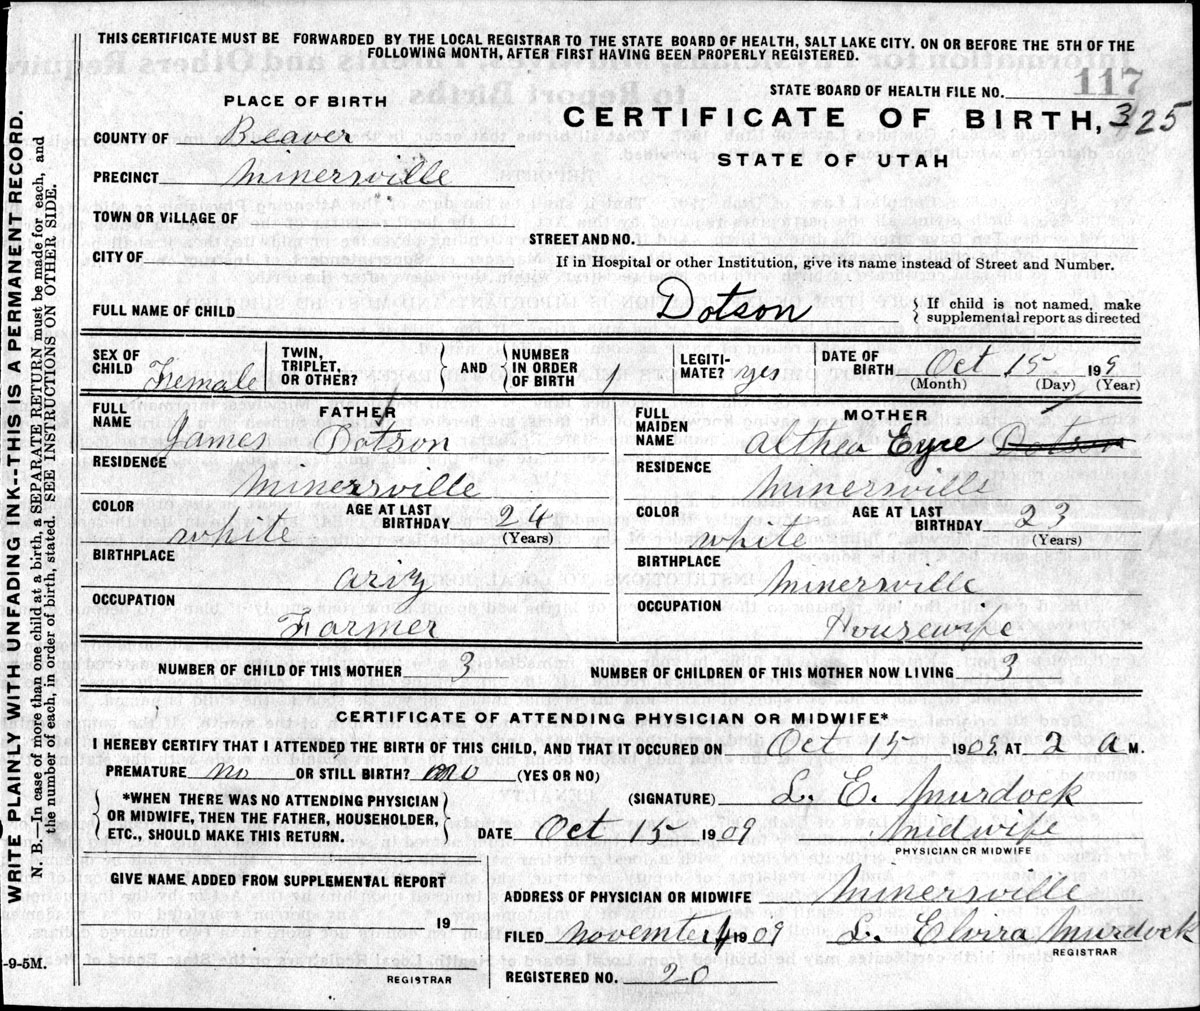 THIS CERTIFICATE MUST BE FORWARDED BY THE LOCAL REGISTRAR TO THE STATE BOARD OF HEALTH, SALT LAKE CITY. ON OR BEFORE THE 5TH OF THE
FOLLOWING MONTH, AFTER FIRST HAVING BEEN PROPERLY REGISTERED.
STATE BOARD OF HEALTH FILE NO. 117
PLACE OF BIRTH
CERTIFICATE OF BIRTH, 325
STATE OF UTAH
COUNTY OF Beaver
PRECINCT Minersville
TOWN OR VILLAGE OF
STREET AND NO.
CITY OF
If in Hospital or other Institution, give its name instead of Street and Number.
FULL NAME OF CHILD Dotson { If child is not named, make
supplemental report as directed
SEX OF CHILD Female TWIN, TRIPLET, OR OTHER? AND NUMBER IN ORDER OF BIRTH 1 LEGITI-MATE? yes DATE OF BIRTH Oct 15 1909
(Month) (Day) (Year)
FATHER
FULL NAME James Dotson
RESIDENCE
Minersville
COLOR white AGE AT LAST BIRTHDAY 24
(Years)
BIRTHPLACE
Ariz
OCCUPATION
Farmer
MOTHER
FULL MAIDEN NAME Althea Eyre Dotson
RESIDENCE
Minersville
COLOR white AGE AT LAST BIRTHDAY 23
(Years)
BIRTHPLACE
Minersville
OCCUPATION
Housewife
NUMBER OF CHILD OF THIS MOTHER 3 NUMBER OF CHILDREN OF THIS MOTHER NOW LIVING 3
CERTIFICATE OF ATTENDING PHYSICIAN OR MIDWIFE*
I HEREBY CERTIFY THAT I ATTENDED THE BIRTH OF THIS CHILD, AND THAT IT OCCURED ON Oct 15 1909, AT 2 A M.
PREMATURE no OR STILL BIRTH? no (YES OR NO)
*WHEN THERE WAS NO ATTENDING PHYSICIAN
OR MIDWIFE, THEN THE FATHER, HOUSEHOLDER,
ETC., SHOULD MAKE THIS RETURN.
(SIGNATURE) L. E. Murdock
DATE Oct 15 1909 Midwife
PHYSICIAN OR MIDWIFE
GIVE NAME ADDED FROM SUPPLEMENTAL REPORT
19
REGISTRAR
ADDRESS OF PHYSICIAN OR MIDWIFE Minersville
FILED November 4 1909 L. Elvira Murdock
REGISTRAR
REGISTERED NO. 20
WRITE PLAINLY WITH UNFADING INK--THIS IS A PERMANENT RECORD.
N. B.—In case of more than one child at a birth, a SEPARATE RETURN must be made for each, and
the number of each, in order of birth, stated. SEE INSTRUCTIONS ON OTHER SIDE.
-9-5M.